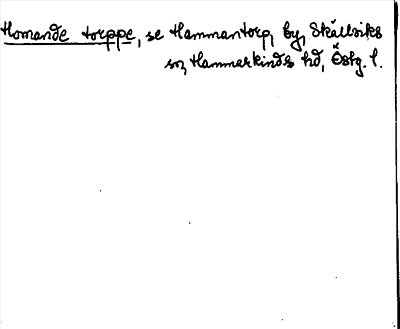 Homande torppe, se Hammantorp, by, Skällviks
sn, Hammarkinds hd, Östg. l.